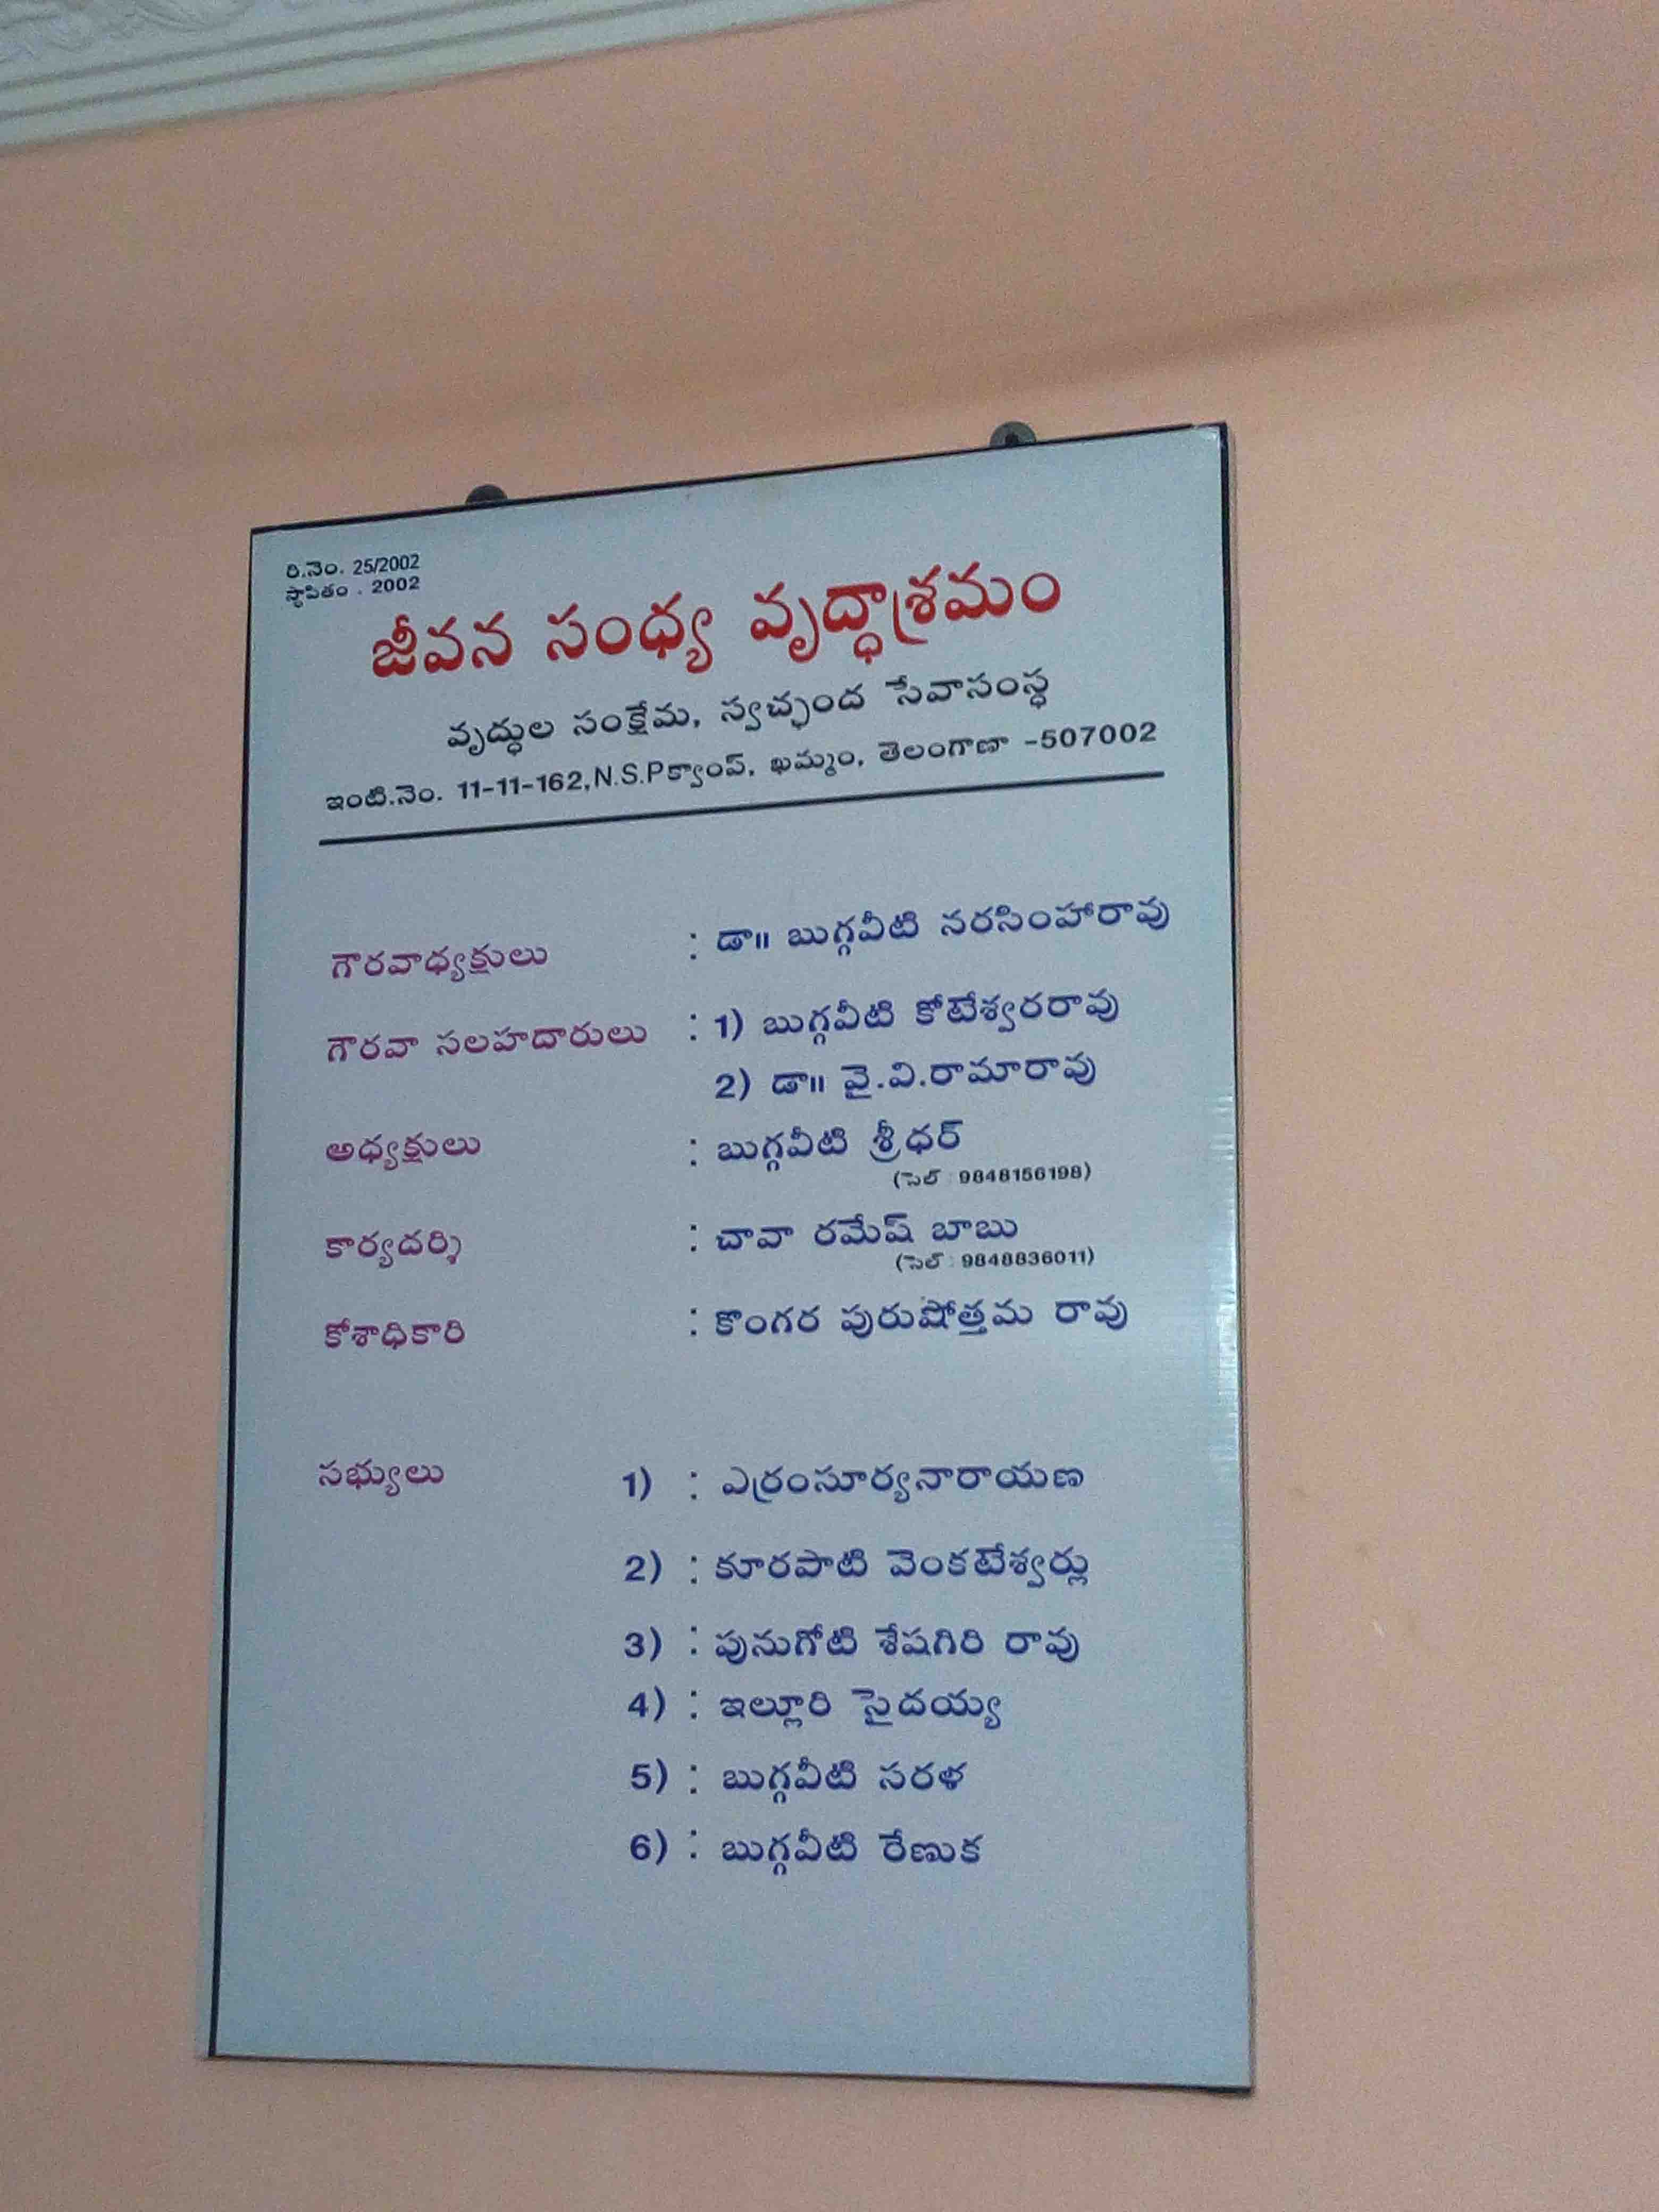 రి.నెం. 25/2002
స్థాపితం . 2002
జీవన సంధ్య వృద్ధాశ్రమం
వృద్ధుల సంక్షేమ, స్వచ్ఛంద సేవాసంస్థ
ఇంటి.నెం. 11-11-162,N.S.Pక్యాంప్, ఖమ్మం, తెలంగాణా -507002
గౌరవాధ్యక్షులు : డా॥ బుగ్గవీటి నరసింహారావు
గౌరవా సలహదారులు : 1) బుగ్గవీటి కోటేశ్వరరావు
2) డా॥ వై.వి.రామారావు
అధ్యక్షులు : బుగ్గవీటి శ్రీధర్
(సెల్ : 9848156198)
కార్యదర్శి : చావా రమేష్ బాబు
(సెల్ : 9848836011)
కోశాధికారి : కొంగర పురుషోత్తమ రావు
సభ్యులు 1) : ఎర్రంసూర్యనారాయణ
2) : కూరపాటి వెంకటేశ్వర్లు
3) : పునుగోటి శేషగిరి రావు
4) : ఇల్లూరి సైదయ్య
5) : బుగ్గవీటి సరళ
6) : బుగ్గవీటి రేణుక